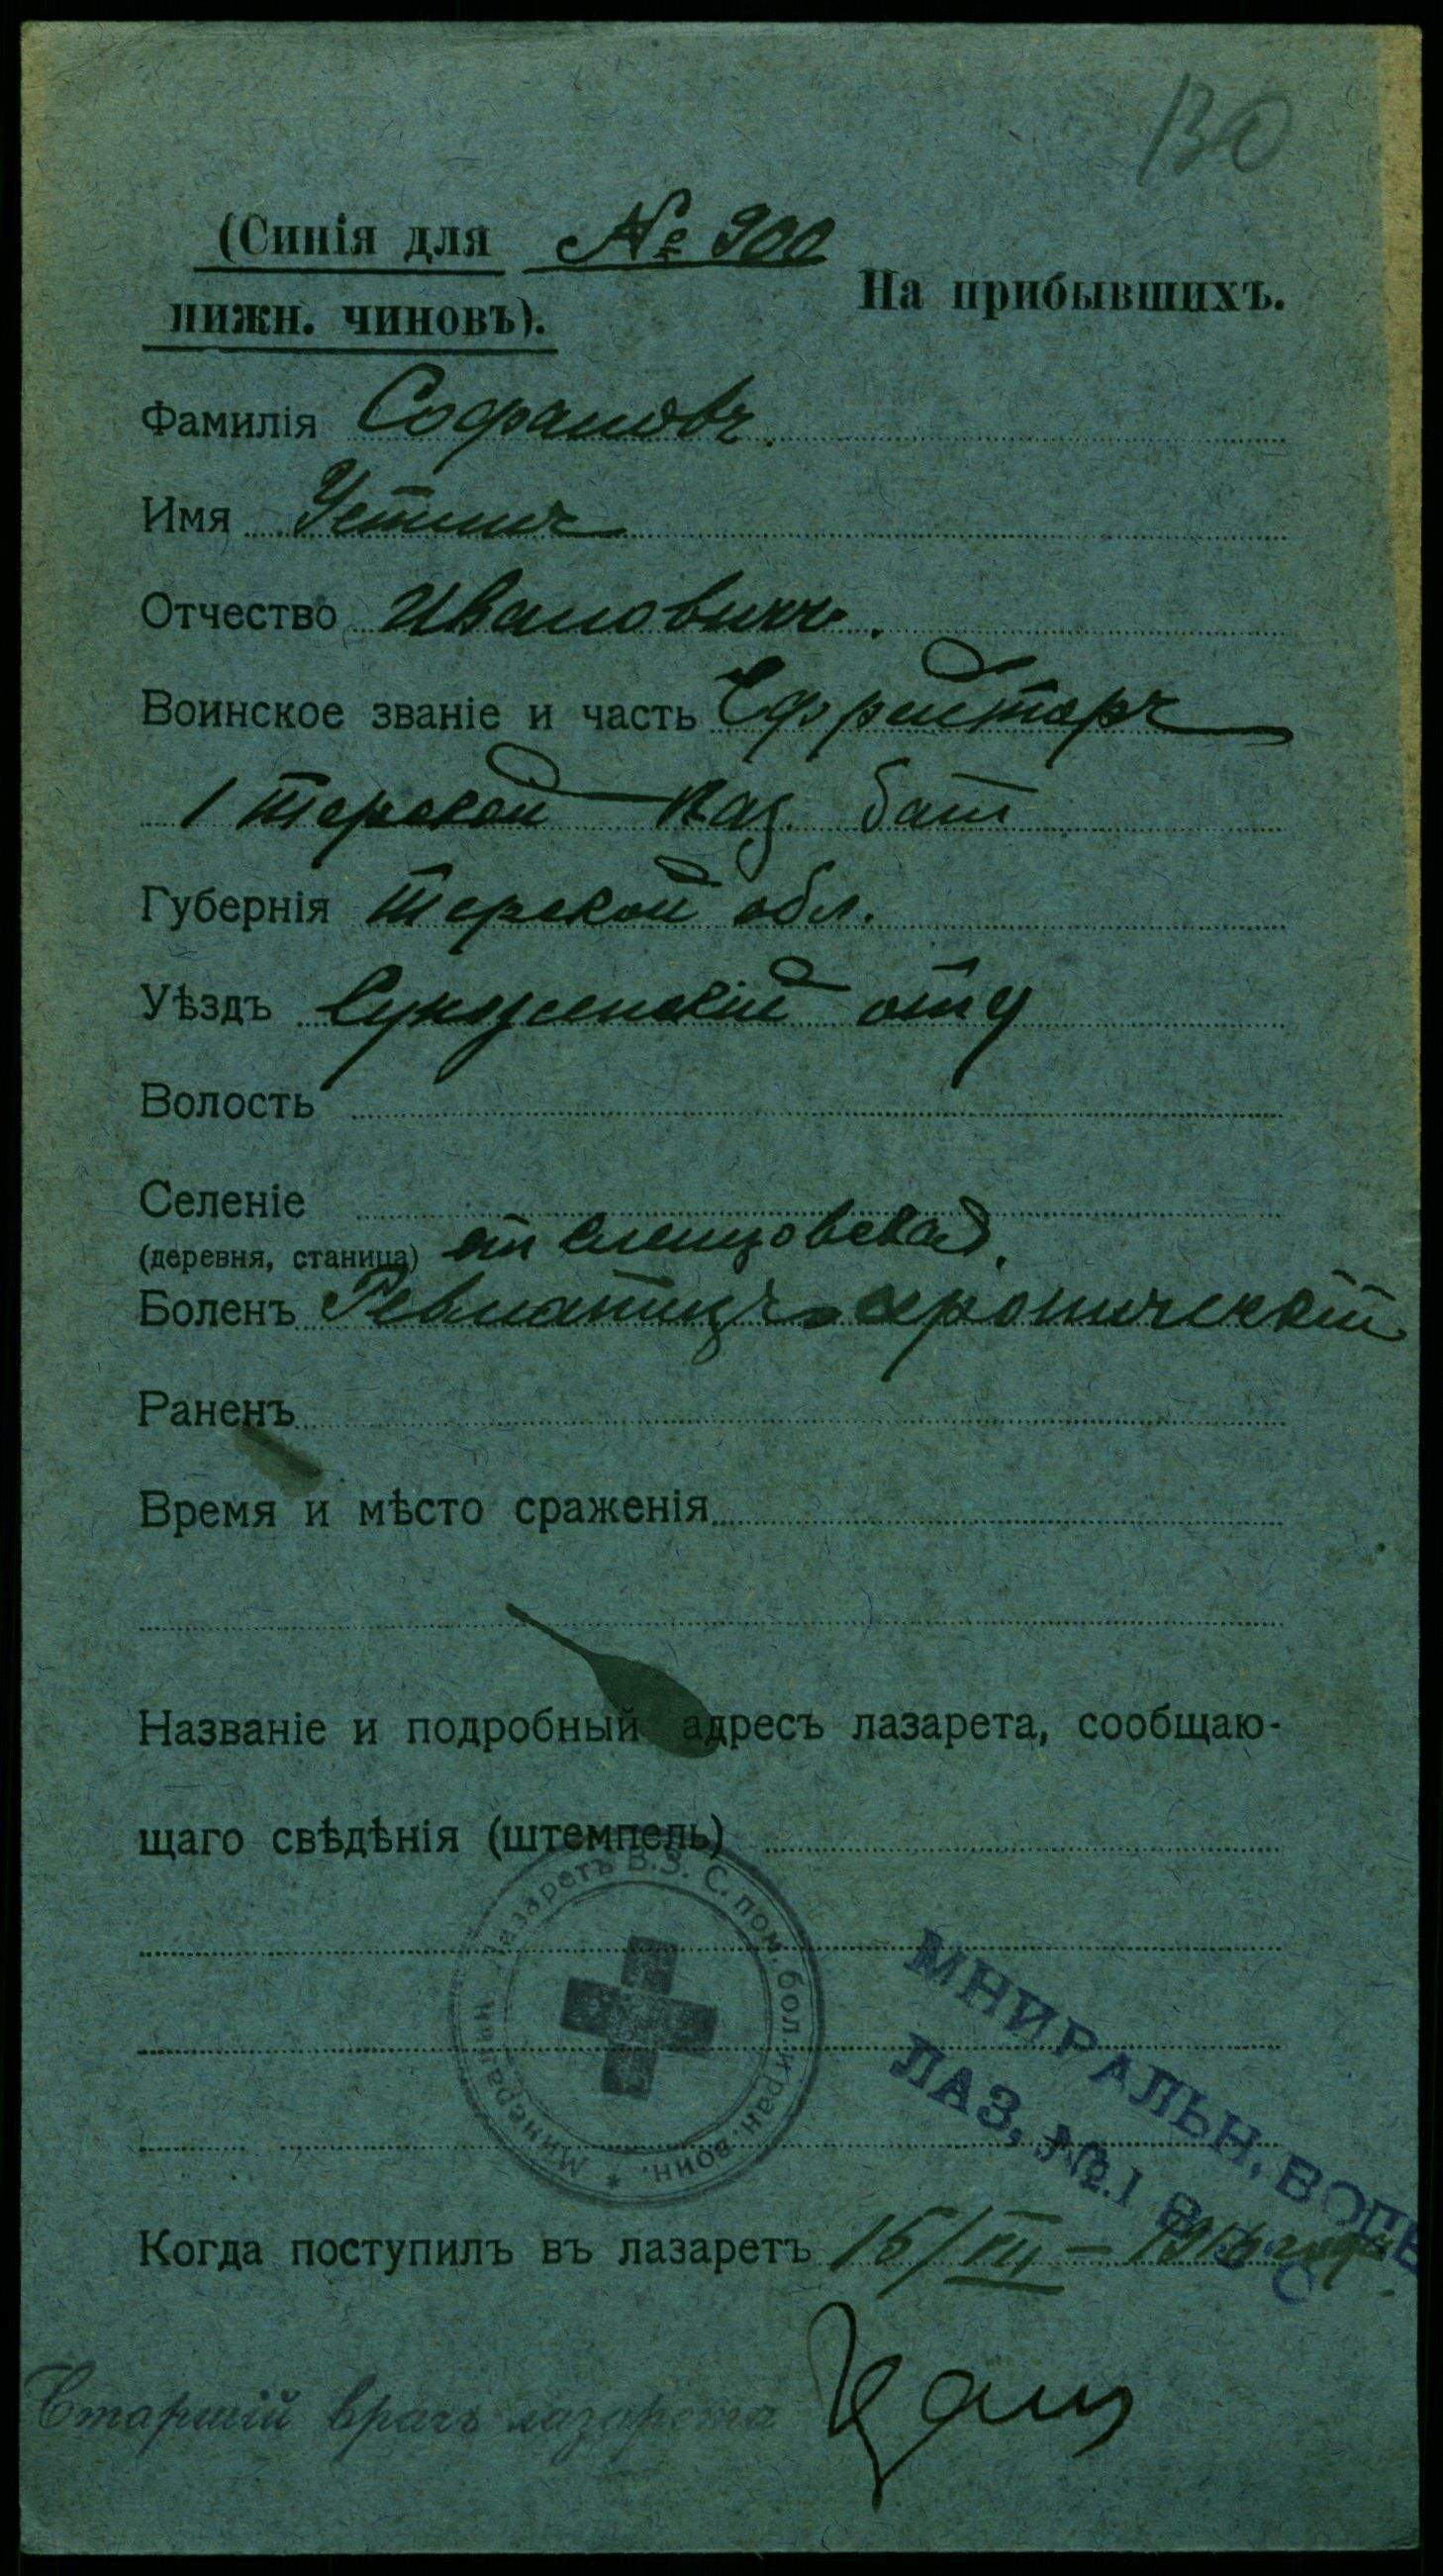 130
(Синія для № 900
нижн. чиновъ).
На прибывшихъ.
Фамилія Софановъ.
Имя Устинъ
Отчество Ивановичъ.
Воинское званіе и часть Ефрейторъ
1 Терской каз. бат
Губернія Терской обл.
Уѣздъ Сунженскій отд
Волость
Селеніе
(деревня, станица) ст Слепцовская.
Боленъ Ревматизъ хроническій
Раненъ
Время и мѣсто сраженія
Названіе и подробный адресъ лазарета, сообщаю-
щаго свѣдѣнія (штемпель)
Минеральн. Лазаретъ В.З.С. пом. бол. и ран. воин. *
МНИРАЛЬН. ВОДЫ
ЛАЗ, №.1 В З С
Когда поступилъ въ лазаретъ 15/VIII – 1916 года.
Старшій врачъ лазарета